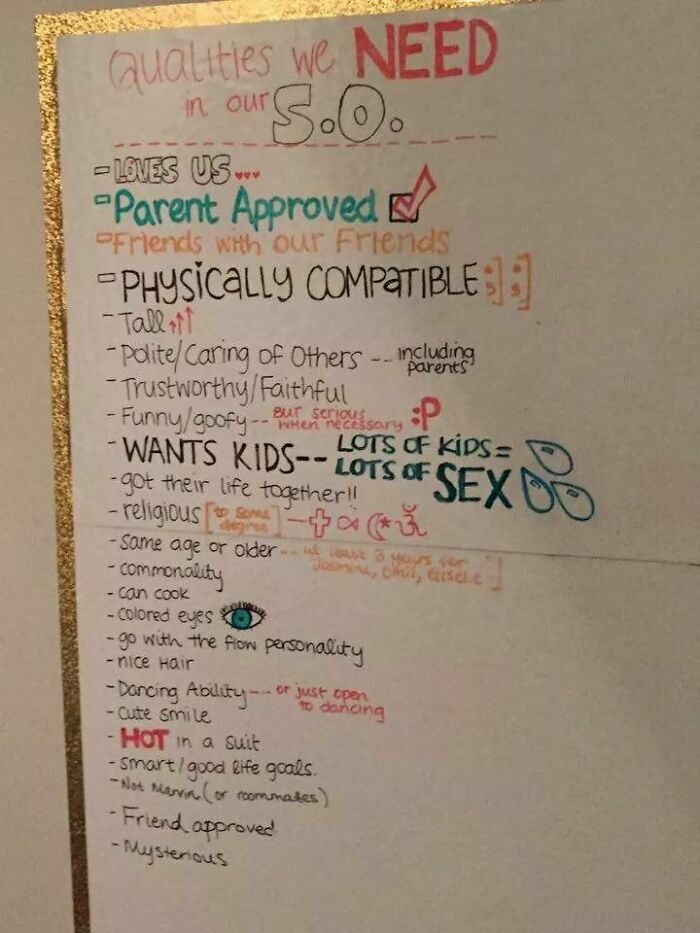 Qualities we NEED
in our S.O.
- LOVES US...
- Parent Approved
- Friends with our Friends
- PHYSICALLY COMPATIBLE :] :]
- Tall
- Polite/Caring of Others -- including parents
- Trustworthy/Faithful
- Funny/goofy -- BUT serious when necessary :P
- WANTS KIDS -- LOTS OF KIDS =
LOTS OF SEX
- got their life together!!
- religious [to some degree] —
- same age or older -- at least 3 years for Jasmine, Giselle
- commonality
- can cook
- colored eyes
- go with the flow personality
- nice Hair
- Dancing Ability -- or just open to dancing
- cute smile
- HOT in a suit
- smart/good life goals.
- Not Marvin (or roommates)
- Friend approved
- Mysterious